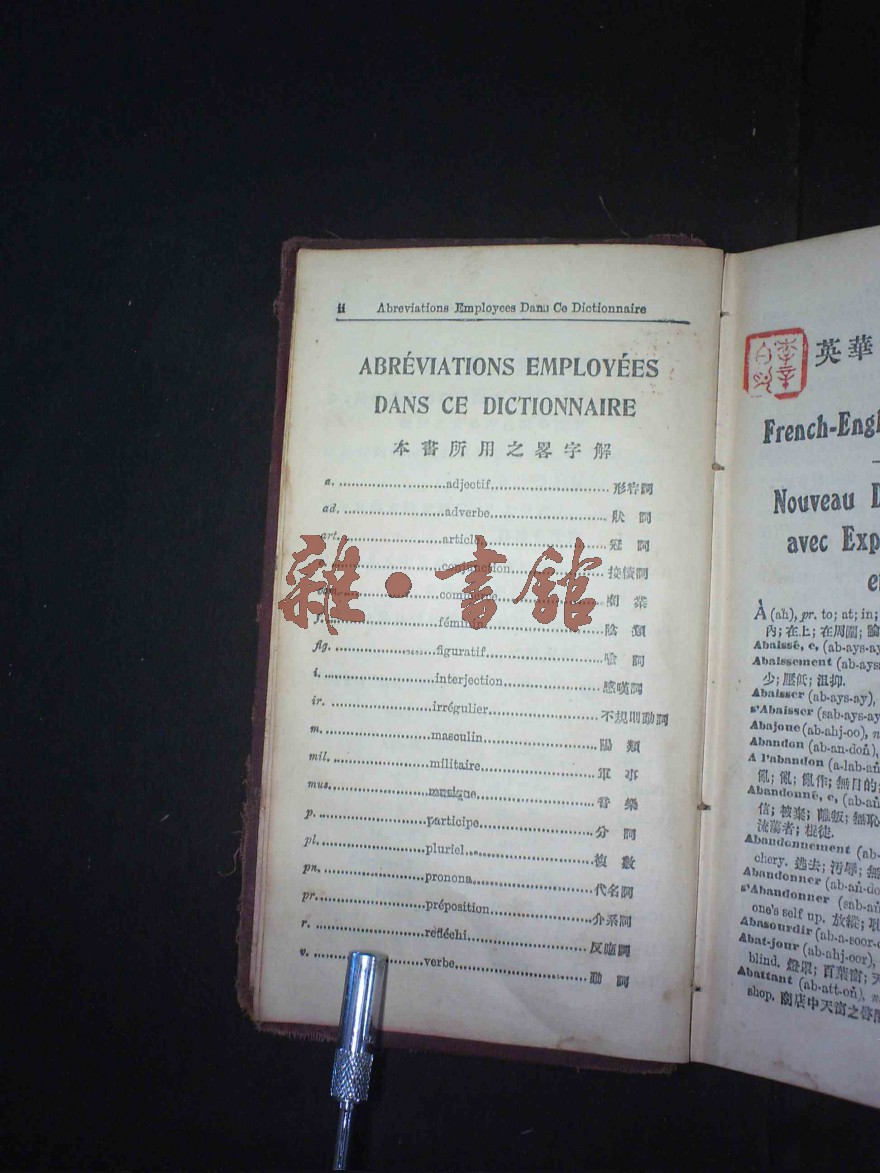 ii Abreviations Employees Dans Ce Dictionnaire
ABRÉVIATIONS EMPLOYÉES
DANS CE DICTIONNAIRE
本書所用之畧字解
a. adjectif 形容詞
ad. adverbe 狀詞
art. article 冠詞
conjunction 接續詞
com. commerce 商業
f. féminin 陰類
fig. figuratif 喻詞
i. interjection 感嘆詞
ir. irrégulier 不規則動詞
m. masculin 陽類
mil. militaire 軍事
mus. musique 音樂
p. participe 分詞
pl. pluriel 複數
pn. pronona 代名詞
pr. préposition 介系詞
r. réfléchi 反應詞
v. verbe 動詞
雜·書館
英華
French-Engl
Nouveau D
avec Exp
e
À (ah), pr. to; at; in;
內; 在上; 在周圍;
Abaissé, e, (ab-ays-ay
Abaissement (ab-ays
少; 壓低; 沮抑.
Abaisser (ab-ays-ay),
s'Abaisser (sab-ays-ay
Abajoue (ab-ahj-oo), n
Abandon (ab-an-doñ),
A l'abandon (a-lab-añ
亂; 亂; 亂作; 無目的;
Abandonné, e, (ab-añ
信; 被棄; 離叛; 無恥
流蕩者; 棍徒.
Abandonnement (ab-
chery. 逃去; 污辱; 無
Abandonner (ab-añ-do
s'Abandonner (sab-añ
one's self up. 放縱; 耽
Abasourdir (ab-a-soor-d
Abat-jour (ab-ahj-oor),
blind. 燈罩; 百葉窗; 天
Abattant (ab-att-oñ), n
shop. 商店中天窗之